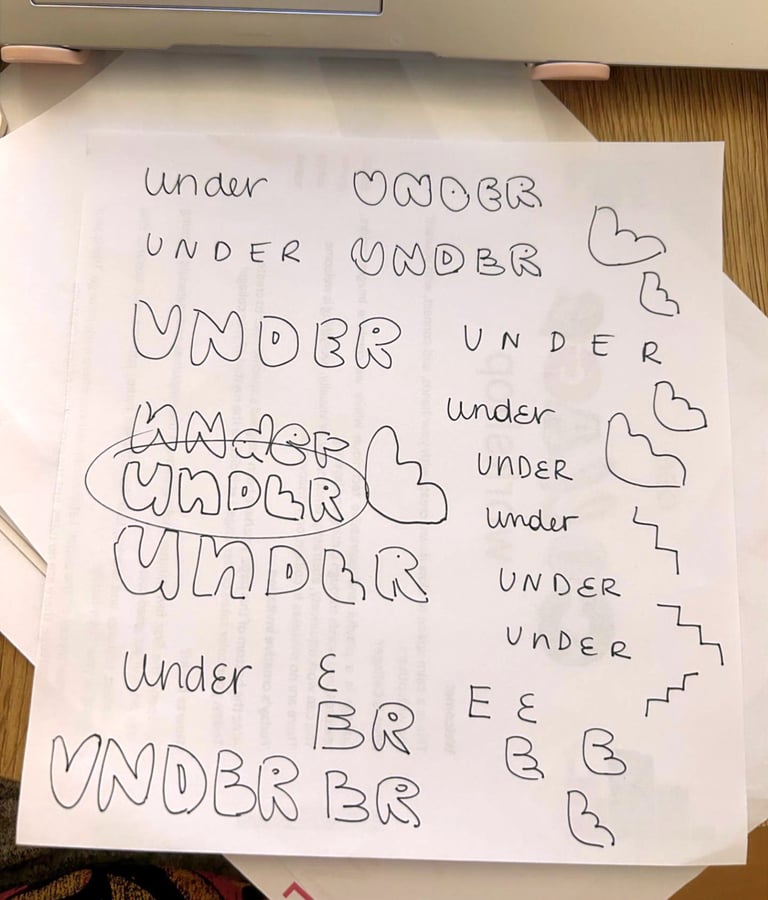 under UNDER
UNDER UNDER
UNDER UNDER
under
UNDER UNDER
UNDER
under
under
UNDER
UNDER
UnDER
under ε
ER E ε
E E
UNDER ER
E